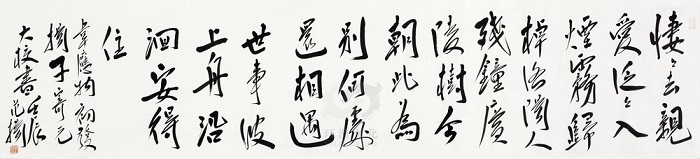 悽々去親
愛泛々入
煙霧歸
棹洛陽人
殘鐘廣
陵樹今
朝此為
別何處
還相遇
世事波
上舟沿
洄安得
住
韋應物初發
揚子寄元
大校書 壬辰